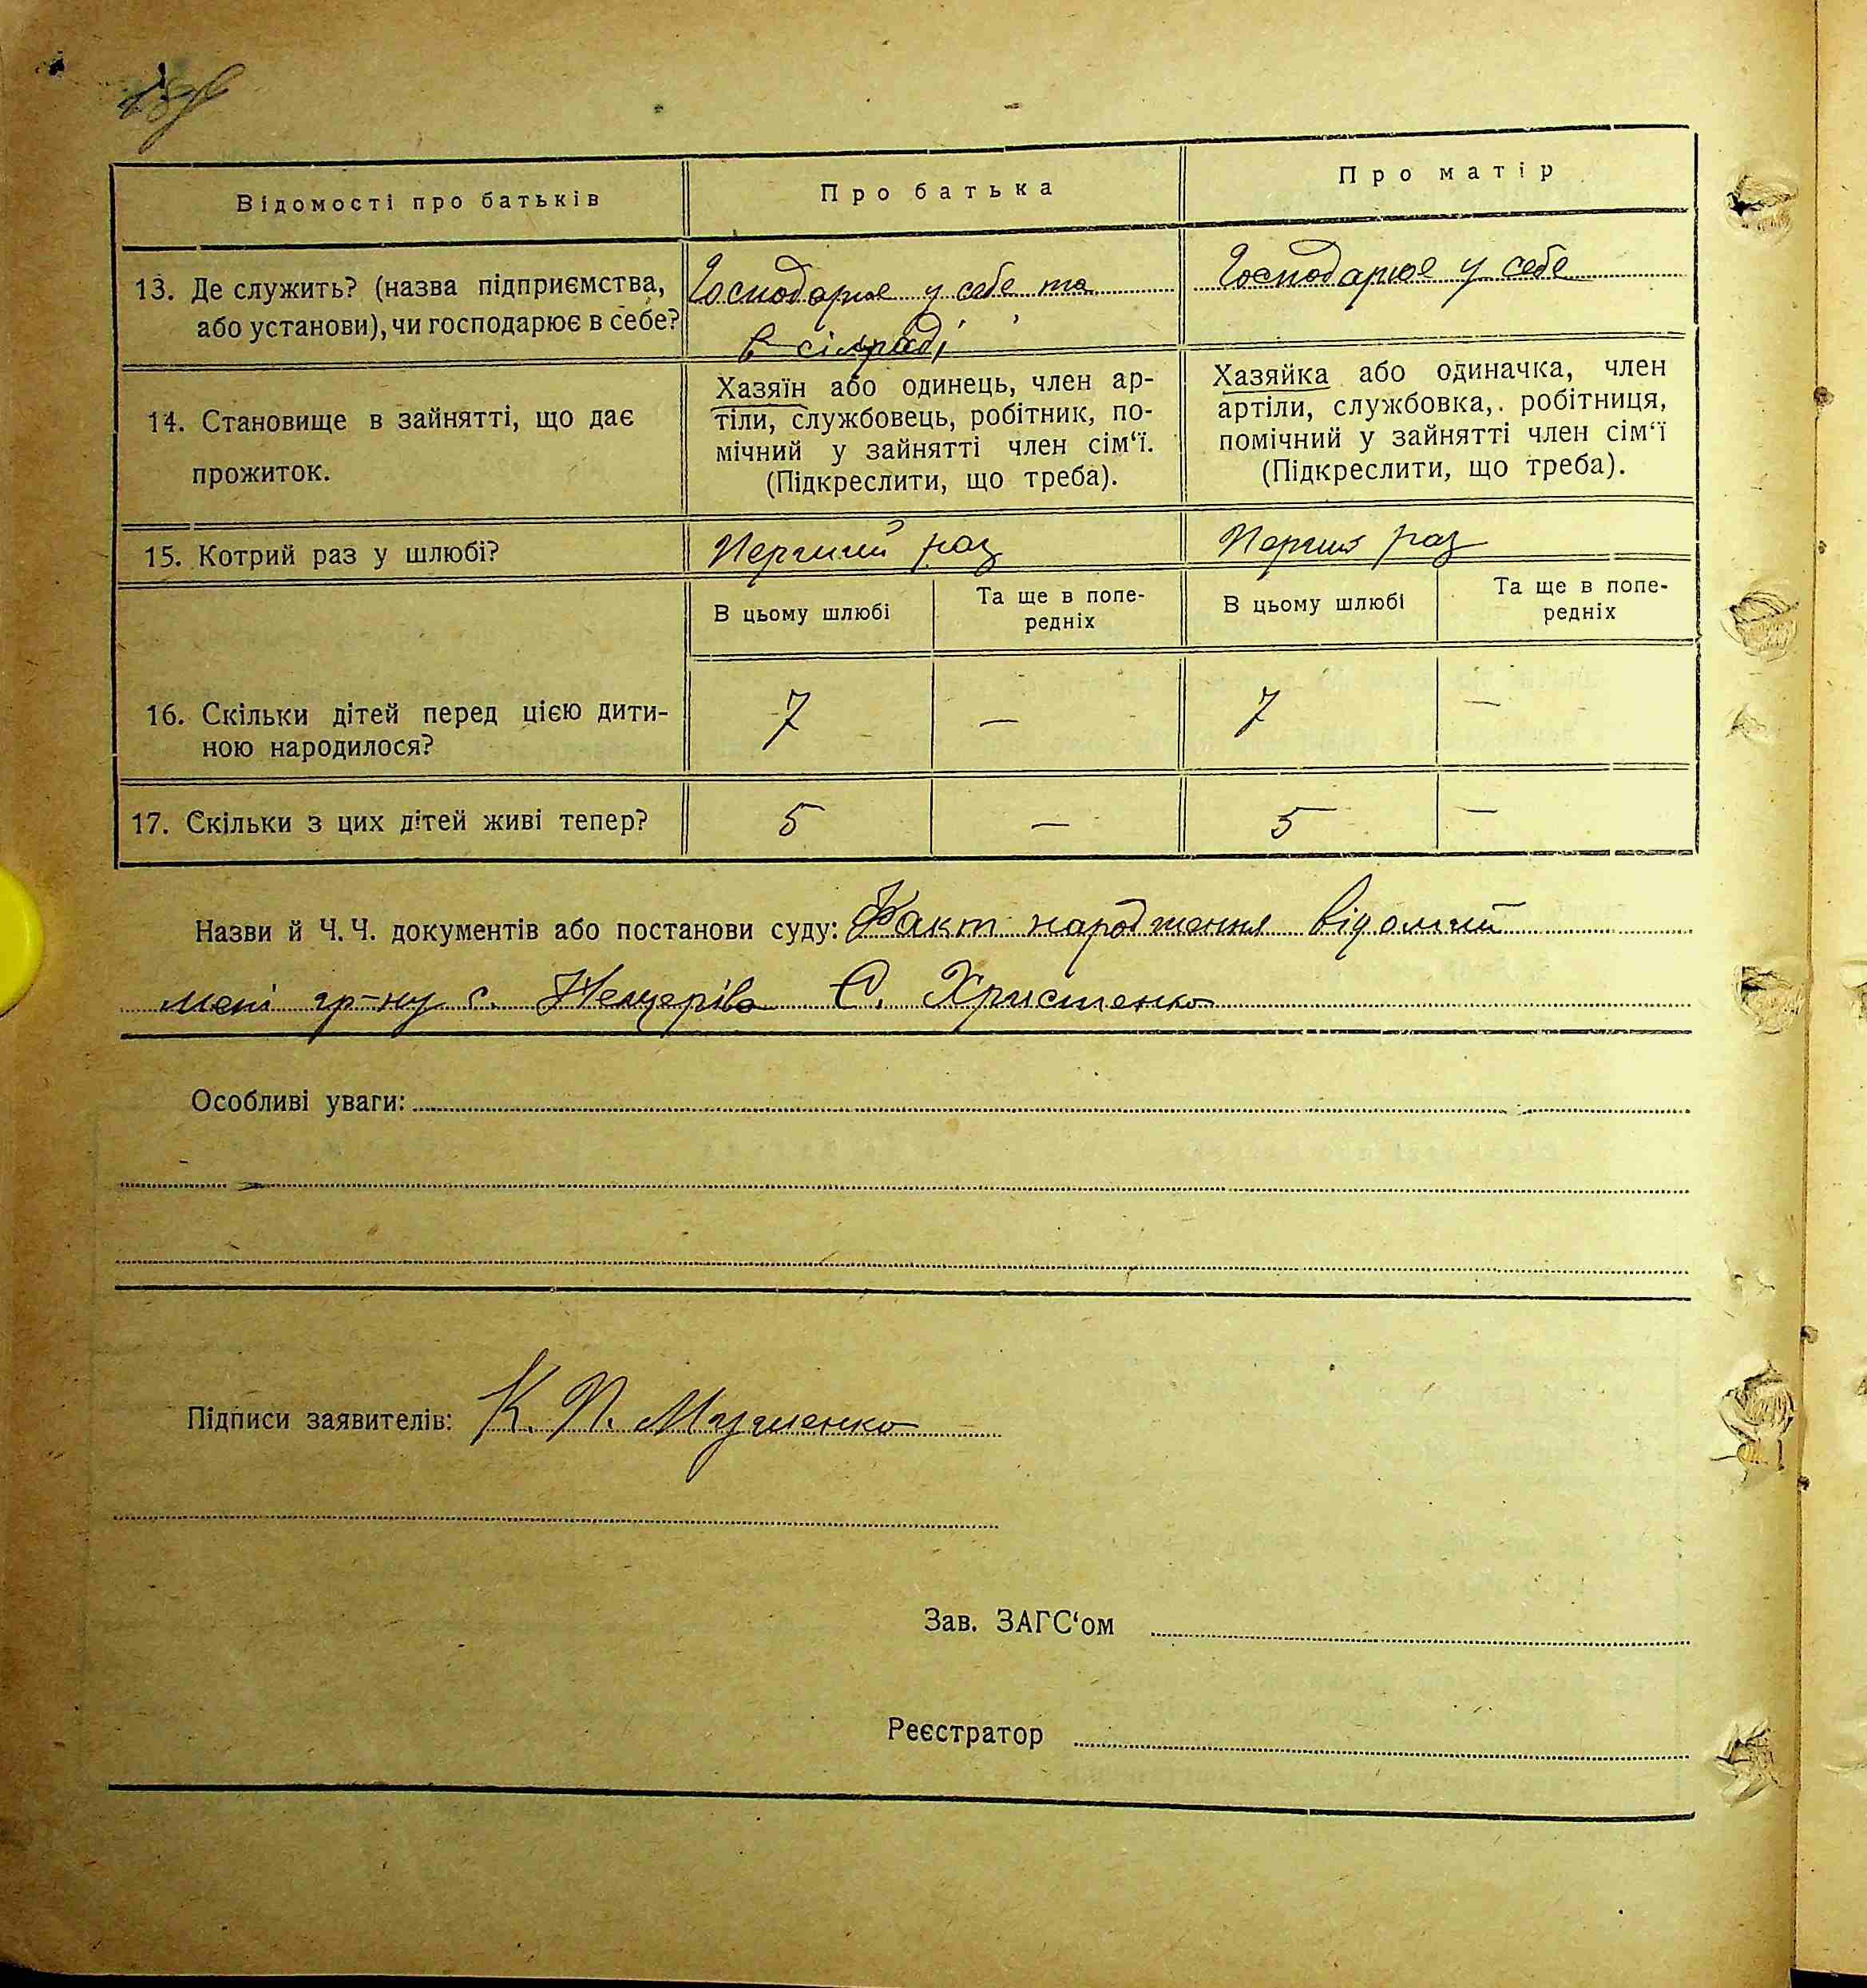 Відомості про батьків
Про батька
Про матір
13. Де служить? (назва підприємства,
або установи), чи господарює в себе?
Господарює у себе та
в сільраді
Господарює у себе
14. Становище в зайнятті, що дає
прожиток.
Хазяїн або одинець, член ар-
тіли, службовець, робітник, по-
мічний у зайнятті член сім‘ї.
(Підкреслити, що треба).
Хазяйка або одиначка, член
артіли, службовка,. робітниця,
помічний у зайнятті член сім‘ї
(Підкреслити, що треба).
15. Котрий раз у шлюбі?
Перший раз
Перший раз
В цьому шлюбі
Та ще в попе-
редніх
В цьому шлюбі
Та ще в попе-
редніх
16. Скільки дітей перед цією дити-
ною народилося?
7 — 7 —
17. Скільки з цих дітей живі тепер?
5 — 5 —
Назви й Ч. Ч. документів або постанови суду: Факт народження відомий
мені гр-ну с. Нещерів Є. Христенко
Особливі уваги:
Підписи заявителів: К. П.
Зав. ЗАГС‘ом
Реєстратор